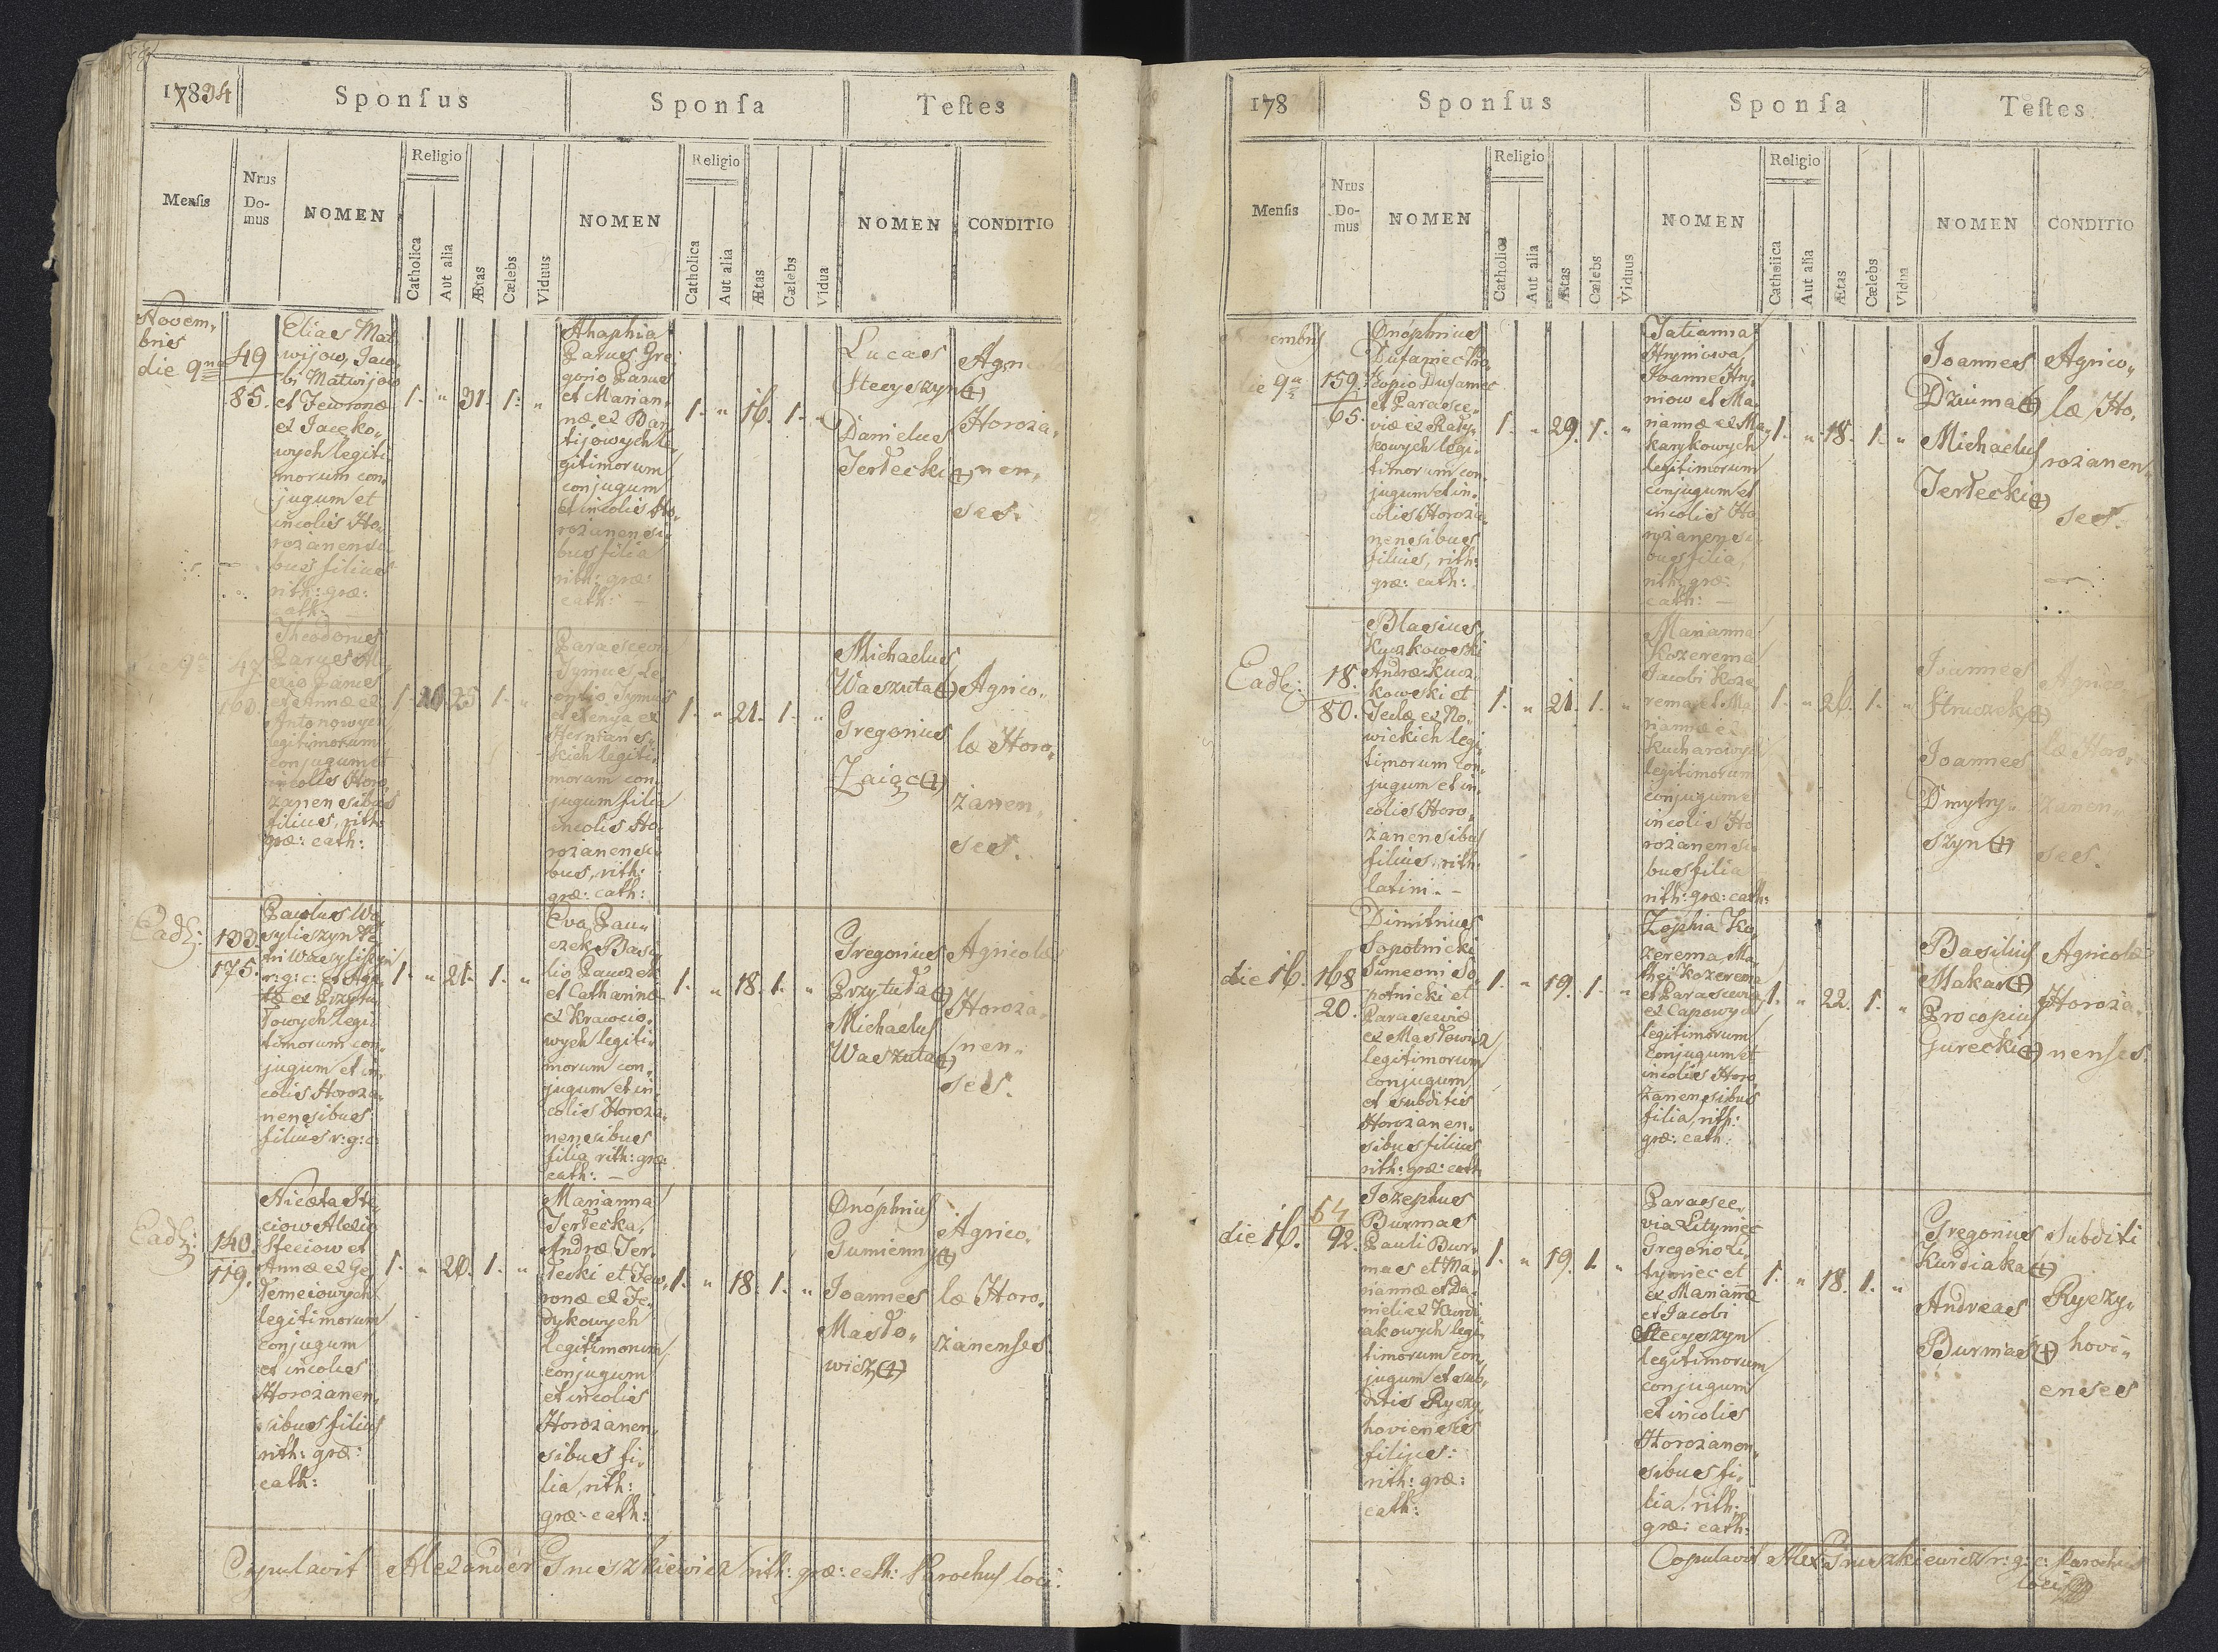 17834 Sponſus Sponſa Teſtes
Menſis Nrus Do- mus NOMEN Religio Catholica Aut alia Ætas Cælebs Viduus NOMEN Religio Catholica Aut alia Ætas Cælebs Vidua NOMEN CONDITIO
Novem„
bris
die 9na
49
85.
Elias Mat„
wijow, Jaco„
bi Matwijow
et Jewronæ
ex Jacko„
wych legiti„
morum con„
jugum et
incolis Ho„
rozanensi„
bus filius
rith: græ:
cath:
1. „ 31. 1. „
Ahaphia
Parus Gre„
gorio Parus
et Marian„
næ ex Bar„
tijowych le„
gitimorum
conjugum
et incolis Ho„
rozanensi„
bus filia
rith: græ:
cath: —
1. „ 16. 1. „
Lucas
Stecyszyn (+)
Danielus
Jertecki (+)
Agricolæ
Horoza„
nen„
ses.
9na
47
160.
Theodorus
Parus Ale„
xio Parus
et Annæ ex
Antonowych
legitimorum
conjugum et
incolis Horo„
zanensibus
filius, rith:
græ: cath:
1. 25 1. „
Parascevia
Tymus, Le„
ontio Tymus
et Xenya ex
legiti„
morum con„
jugum filia
incolis Ho„
rozanensi„
bus, rith:
græ: cath:
1. „ 21. 1. „
Michaelus
Waszuta (+)
Gregorius
Zaiąc (+)
Agrico„
læ Horo„
zanen„
ses.
Ead:
133.
175.
Paulus Wa„
syliszyn
Wasyliszyn
r: g: c: et Aga„
tæ ex Przytu„
towych legi„
timorum con„
jugum et in„
colis Horoza„
nensibus
filius r: g: c:
1. „ 21. 1. „
Eva Pau„
czek Basi„
lio Pauczek
et Catharinæ
ex Krawcio„
wych legiti„
morum con„
jugum et in„
colis Horoza„
nensibus
filia rith: græ:
cath: —
1. „ 18. 1. „
Gregorius
Przytuta (+)
Michaelus
Waszuta (+)
Agricolæ
Horoza„
nen„
ses.
Ead:
140.
119.
Niceta Ste„
ciow Alexio
Steciow et
Annæ ex
legitimorum
conjugum
et incolis
Horozanen„
sibus filius
rith: græ:
cath:
1. „ 20. 1. „
Marianna
Jertecka,
Andræ Jer„
tecki et Jew„
ronæ ex Fe„
dykowych
legitimorum
conjugum
et incolis
Horozanen„
sibus fi„
lia, rith:
græ: cath:
1. „ 18. 1. „
Onophrius
Gumienny (+)
Joannes
Masto„
wicz (+)
Agrico„
læ Horo„
zanenses.
Copulavit Alexander Gruszkiewicz rith: græ: cath: Parochus loci.
178 Sponſus Sponſa Teſtes
Menſis Nrus Do- mus NOMEN Religio Catholica Aut alia Ætas Cælebs Viduus NOMEN Religio Catholica Aut alia Ætas Cælebs Vidua NOMEN CONDITIO
embris
die 9na
159.
65.
Onophrius
Dusaniec Pro„
kopio Dusaniec
et Parasce„
viæ ex Raty„
kowych legi„
timorum con„
jugum et in„
colis Horoza„
nensibus
filius, rith:
græ: cath:
1. „ 29. 1. „
Tatianna
Hryniowa,
Joanne Hry„
niow et Ma„
riannæ ex Ma„
karykowych
legitimorum
conjugum et
incolis Ho„
rozanensi„
bus filia,
rith: græ:
cath: —
1. „ 18. 1. „
Joannes
Dziuma (+)
Michaelus
Jertecki (+)
Agrico„
læ Ho„
rozanen„
ses.
Ead:
18.
80.
Blasius
Kuczkowski
Andræ Kucz„
kowski et
Teclæ ex No„
wickich legi„
timorum con„
jugum et in„
colis Horo„
zanensibus
filius, rith:
latini. —
1. „ 21. 1. „
Marianna
Kozerema
Jacobi Koze„
rema et Ma„
riannæ ex
Kucharowych
legitimorum
conjugum et
incolis Ho„
rozanensi„
bus filia
rith: græ: cath:
1. „ 26. 1. „
Joannes
Struczek (+)
Joannes
Dmytry„
szyn (+)
Agrico„
læ Horo„
zanen„
ses.
die 16.
168
20.
Dimitrius
Sopotnicki
Simeoni So„
potnicki et
Parasceviæ
ex Mastowicz
legitimorum
conjugum
et subditis
Horozanen„
sibus filius
rith: græ: cath
1. „ 19. 1. „
Zophia Ko„
zerema, Ma„
thei Kozerema
et Parascevia
ex Capowych
legitimorum
conjugum et
incolis Horo„
zanensibus
filia, rith:
græ: cath:
1. „ 22. 1. „
Basilius
Makar (+)
Procopius
Gurecki (+)
Agricolæ
Horoza„
nenses.
die 16.
64
92.
Jozephus
Burmas
Pauli Bur„
mas et Ma„
riannæ et Da„
nieli ex Kurdi„
akowych legi„
timorum con„
jugum et sub„
ditis Ryczy„
hoviensis
filius:
rith: græ:
cath:
1. „ 19. 1. „
Parasce„
via Lityniec
Gregorio Li„
tyniec et
ex Mariannæ
et Jacobi
Stecyszyn
legitimorum
conjugum
et incolis
Horozanen„
sibus fi„
lia. rith:
græ: cath:
1. „ 18. 1. „
Gregorius
Kurdiaka (+)
Andreas
Burmas (+)
Subditi
Ryczy„
hovi„
enses
Copulavit Alex: Gruszkiewicz r: g: c: Parochus
loci